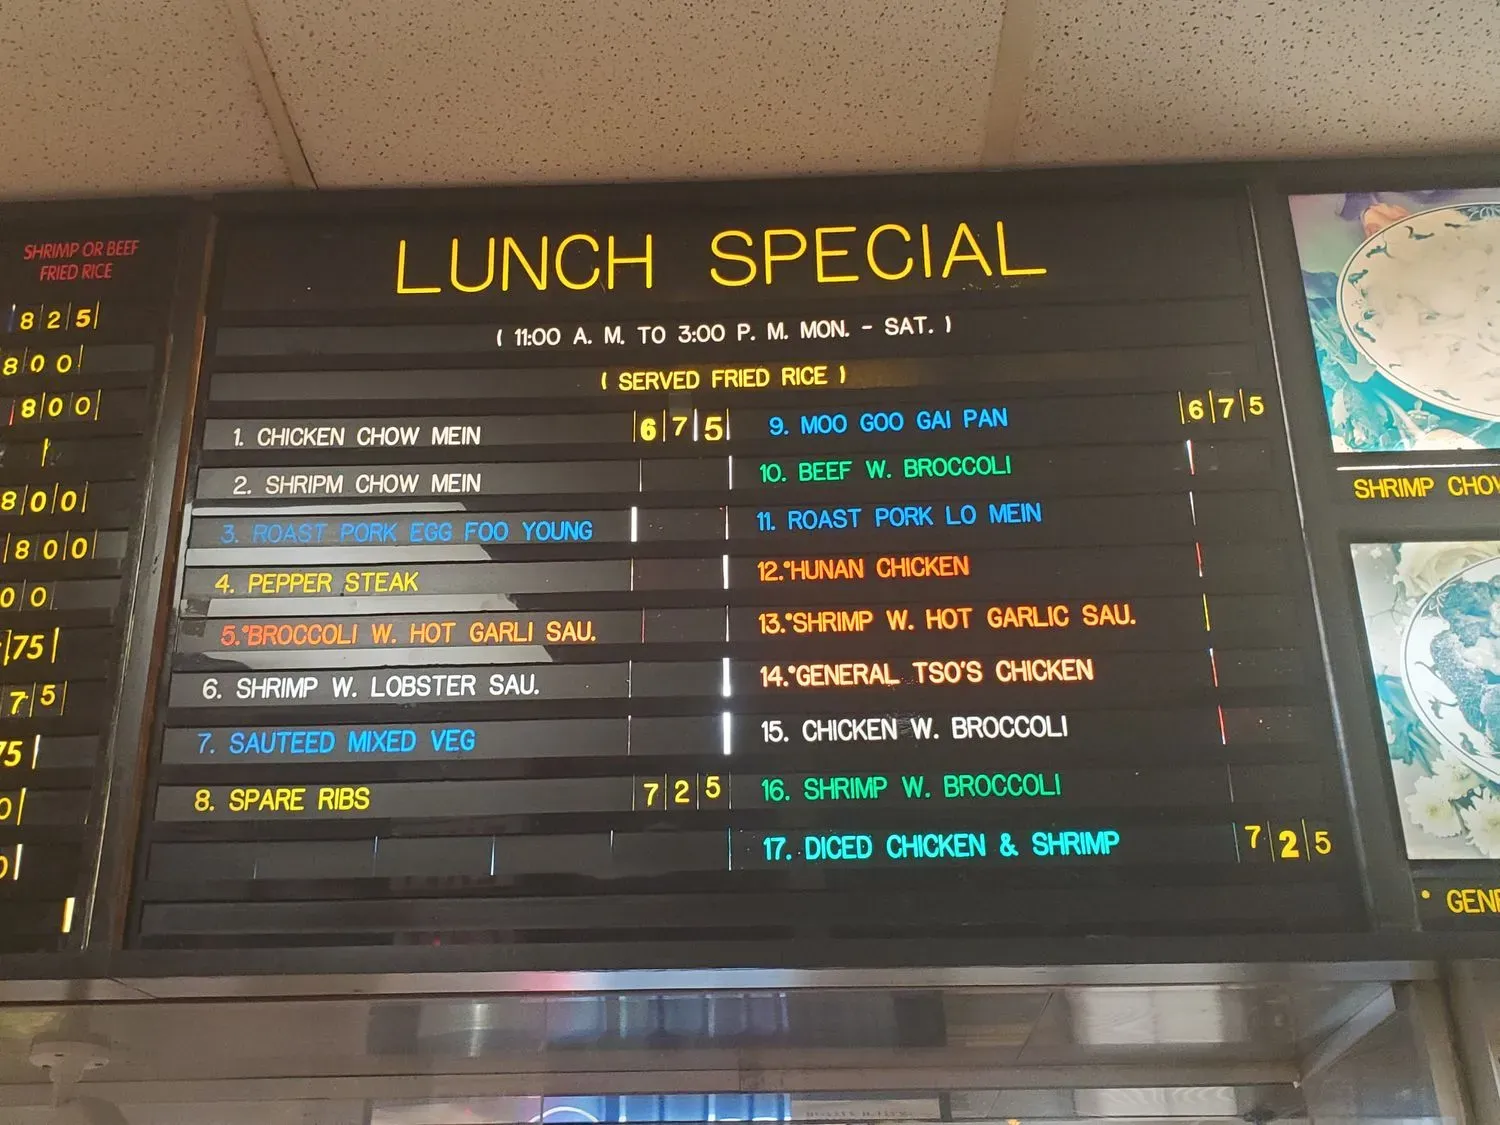 SHRIMP OR BEEF
FRIED RICE
825
800
800
800
800
00
75
75
75
0
0
LUNCH SPECIAL
( 11:00 A. M. TO 3:00 P. M. MON. - SAT. )
( SERVED FRIED RICE )
1. CHICKEN CHOW MEIN 675
2. SHRIPM CHOW MEIN
3. ROAST PORK EGG FOO YOUNG
4. PEPPER STEAK
5.*BROCCOLI W. HOT GARLI SAU.
6. SHRIMP W. LOBSTER SAU.
7. SAUTEED MIXED VEG
8. SPARE RIBS 725
9. MOO GOO GAI PAN 675
10. BEEF W. BROCCOLI
11. ROAST PORK LO MEIN
12.*HUNAN CHICKEN
13.*SHRIMP W. HOT GARLIC SAU.
14.*GENERAL TSO'S CHICKEN
15. CHICKEN W. BROCCOLI
16. SHRIMP W. BROCCOLI
17. DICED CHICKEN & SHRIMP 725
SHRIMP CHOW
* GENE